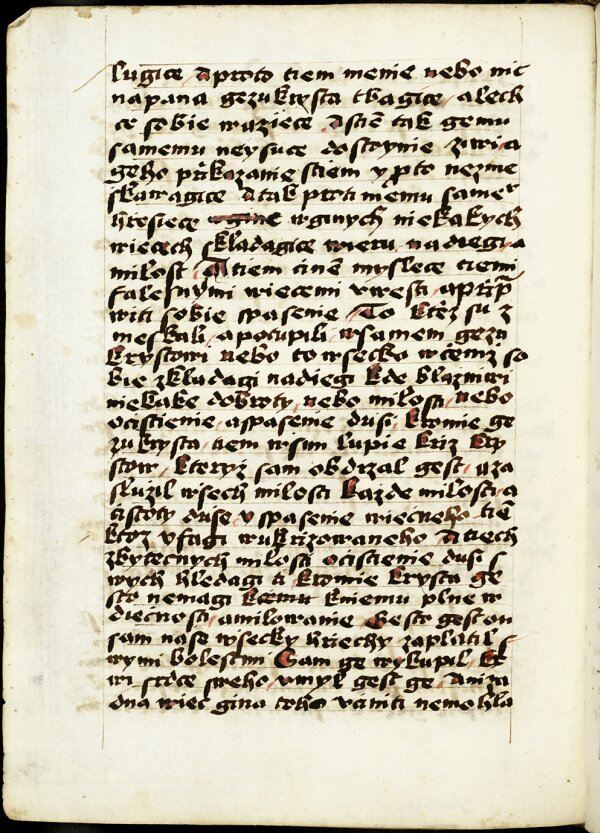 lugice a proto tiem menie nebo nic
na pana gezukrysta tbagice / a lech
ce sobie waziece. A sstiē tak gemu
samemu neysuce dostoynie
geho přikazanie sciem y pto nezme
skawagice A tak proti niemu samer
hřesiece w ginych niekakych
wiecech skladagice wieru, nadiegi a
milost / A tiem činē myslece tiemi
falessnymi wiecemi vwesti a
witi sobie spasenie / To ktož su z
meskali, a potupili w samem gezu
krystowi nebo to wsecko w čemž so
bie zkladagi nadiegi kde blazniwi
niekake dobroty, nebo milosti, nebo
očistienie, a spasenie dusi, kromie ge
zukrysta, tiem wsim lupie križ kry
stow, kteryž sam obdržal gest, a za
služil wsech milosti každe milosti, a
čistoty duse y spasenie wiečneho tiē
ktož vfagi w ukrižowaneho A tiech
zbytecnych milosti očistienie dusi s
wych hledagi ti kromie krysta ge
sto nemagi k niemu plne w
diečnosti, a milowanie gest on
sam nase wsecky hřiechy zaplatil s
wymi bolestmi Sam ge wykupil, kr
wi srdce sweho, vmyl gest ge A niža
dna wiec gina toho včiniti nemohla